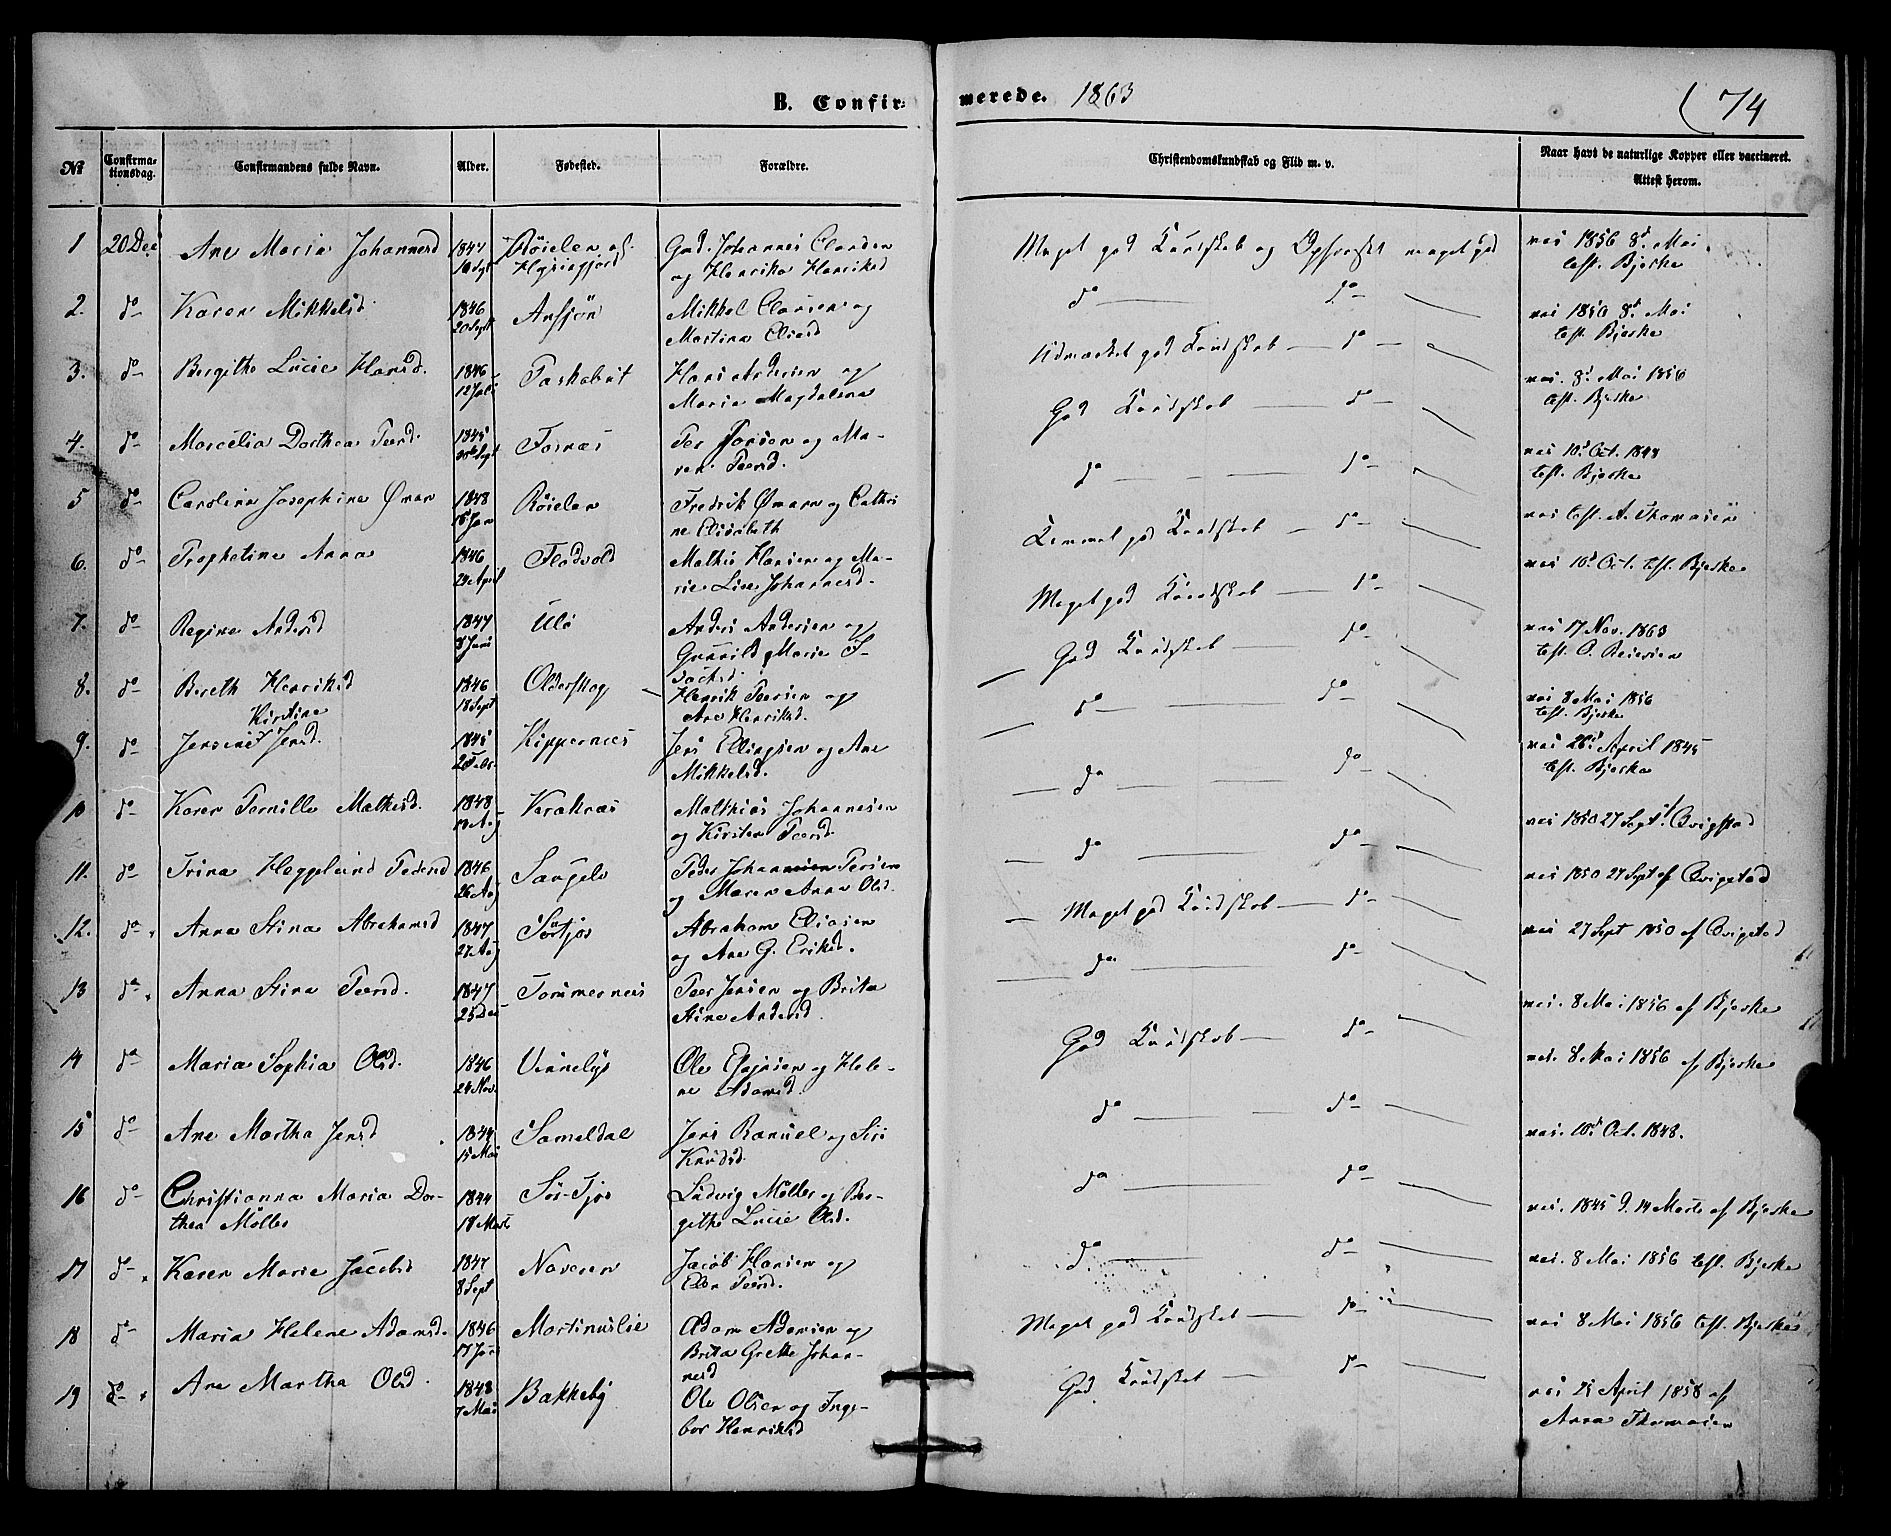 B. Confir-
merede. 1863
74
No
Confirma-
tionsdag.
Confirmandens fulde Navn.
Alder.
Fødested.
Forældre.
Christendomskundskab og Flid m. v.
Naar havt de naturlige Kopper eller vaccineret.
Attest herom.
1 20 Dec Ane Maria Johannesd 1847 Røielen Johannes
og Henrika Henriksd Meget god Kundskab og Opførsel meget god vac 1856 8d Mai
test. Bjerke
2. do Karen Mikkelsd 1846 20 Sept Mikkel Clausen og
Martina Eliasd do do
test. Bjerke
3. do Bergithe Lucie Hansd. 1846 12 Juli Hans Andersen og
Maria Magdalena Udmærket god Kundskab do vac. 8d Mai 1856
test. Bjerke
4. do Marcelia Dorthea Peersd. 1845 Fornæs Per Jonsen og Ma-
ren Peersd. God Kundskab do vac 10d Oct. 1848
test. Bjerke
5 do Carolina Josephine 1848 Jan Røielen Fredrik og Cathri
ne Elisabeth do do vac test. A. Thomasen
6. do Anna 1846 April Mathis Hansen og Ma-
rie Lise Johannesd. Temmel god Kundskab do vac 10d Oct. test. Bjerke
7. do Regine Andersd 1847 8 Juni Ulö Anders Andersen og
Gunild Marie I-
sachsd. Meget god Kundskab do vac 17 Nov. 1863
test. O. Reiersen
8. do Bereth Henriksd 1846 18 Sept Olderskog Henrik Peersen og
Ane Henriksd. God Kundskab do vac 8 Mai 1856
test. Bjerke
9. do Jensine Kirstine Jensd. 1845 Febr. Kippernæs Jens Ellingsen og Ane
Mikkelsd. do do vac 26d April 1845
test. Bjerke
10 do Karen Pernille Mathisd. 1848 Aug Mathias Johannesen
og Kirsten Peersd. do do vac 1850 27 Sept. Qvigstad
11. do Trina Hegglund Pedersd 1846 26 Aug Peder Johannesen Persen
og Maren Anna Olsd. do do vac 1850 27 Sept af Qvigstad
12. do Anna Stina Abrahamsd 1847 27 Aug Abraham Eliasen
og Ane G. Eriksd. Meget god Kundskab do vac 27 Sept 1850 af Qvigstad
13 do Anna Stina Peersd. 1847 25 Dec Tømmernæs Peer Jensen og Brita
Stine Andersd. do do vac. 8 Mai 1856 af Bjerke
14 do Maria Sophia Olsd. 1846 24 Nov. Vinnelys Ole og Hele-
ne Adamsd. God Kundskab do vac. 8 Mai 1856 af Bjerke
15 do Ane Martha Jensd 15 Mai Sameldal Jens og Siri
Knudsd. do do vac. 10d Oct. 1848.
16 do Christianna Maria Dor-
thea Møller 1844 18 Marts Ludvig Møller og Ber-
githe Lucie Olsd. do do vac. 1845 d. 14 Marts af Bjerke
17 do Karen Marie Jacobsd 1847 8 Sept Naveren Jacob Hansen og
Elen Peersd. do do vac. 8 Mai 1856 test. Bjerke
18 do Maria Helene Adamsd. 1846 Martinuslie Adam Adamsen og
Brita Grethe Johan-
nesd Meget god Kundskab do vac 8 Mai 1856 test. Bjerke
19 do Ane Martha Olsd. 1848 7 Mai Bakkeby Ole Olsen og Inge-
bor Henriksd God Kundskab do vac April 1858 af
Anna Thomasen